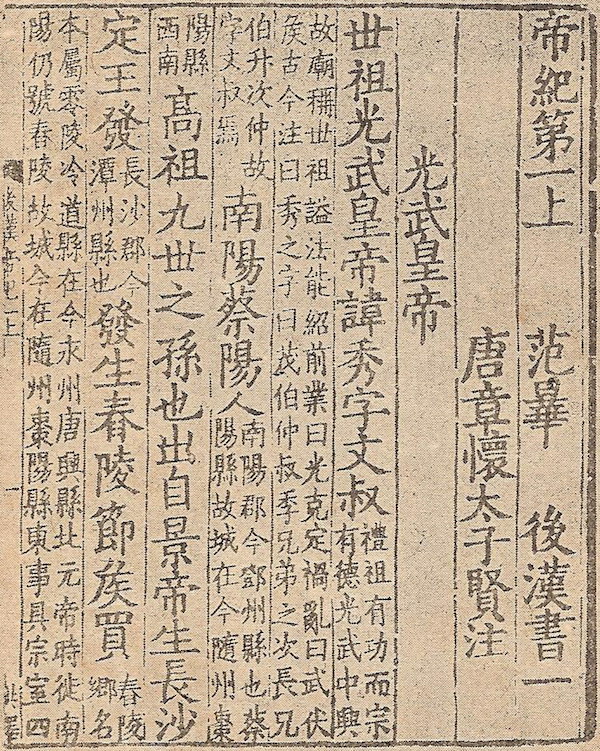 帝紀第一上 范曅 後漢書一
唐章懷太子賢注
光武皇帝
世祖光武皇帝諱秀字文叔 禮祖有功而宗
有德光武中興
故廟稱世祖謚法能紹前業曰光克定禍亂曰武伏
矦古今注曰秀之字曰茂伯仲叔季兄弟之次長兄
伯升次仲故
字文叔焉 南陽蔡陽人 南陽郡今鄧州縣也蔡
陽縣故城在今隨州棗
陽縣
西南 高祖九世之孫也出自景帝生長沙
定王發 長沙郡今
潭州縣也 發生舂陵節矦買 舂陵
鄉名
本屬零陵冷道縣在今永州唐興縣北元帝時徙南
陽仍號舂陵故城今在隨州棗陽縣東事具宗室四
一